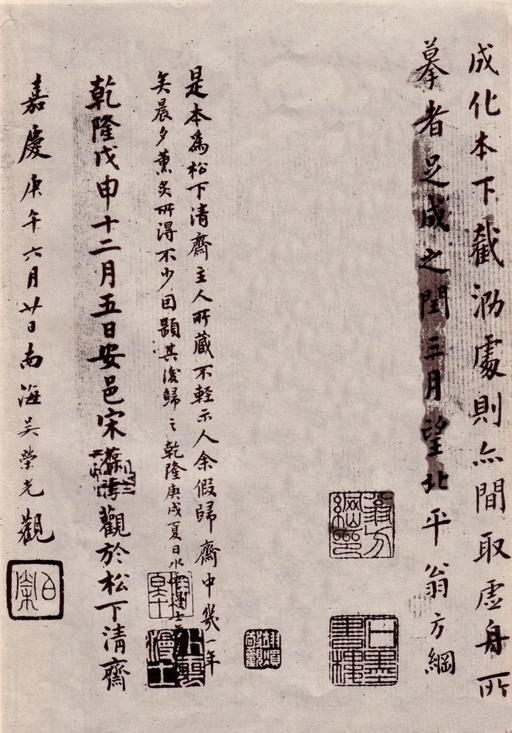 成化本下截泐處則亦間取虛舟所
摹者足成之閏三月望北平翁方綱
翁方綱印
石墨書樓
是本為松下清齋主人所藏不輕示人余假歸齋中幾一年
矣晨夕薰炙所得不少因題其後歸之乾隆庚戌夏日水
乾隆戊申十二月五日安邑宋葆淳觀於松下清齋
嘉慶庚午六月廿日南海吳榮光觀
伯榮